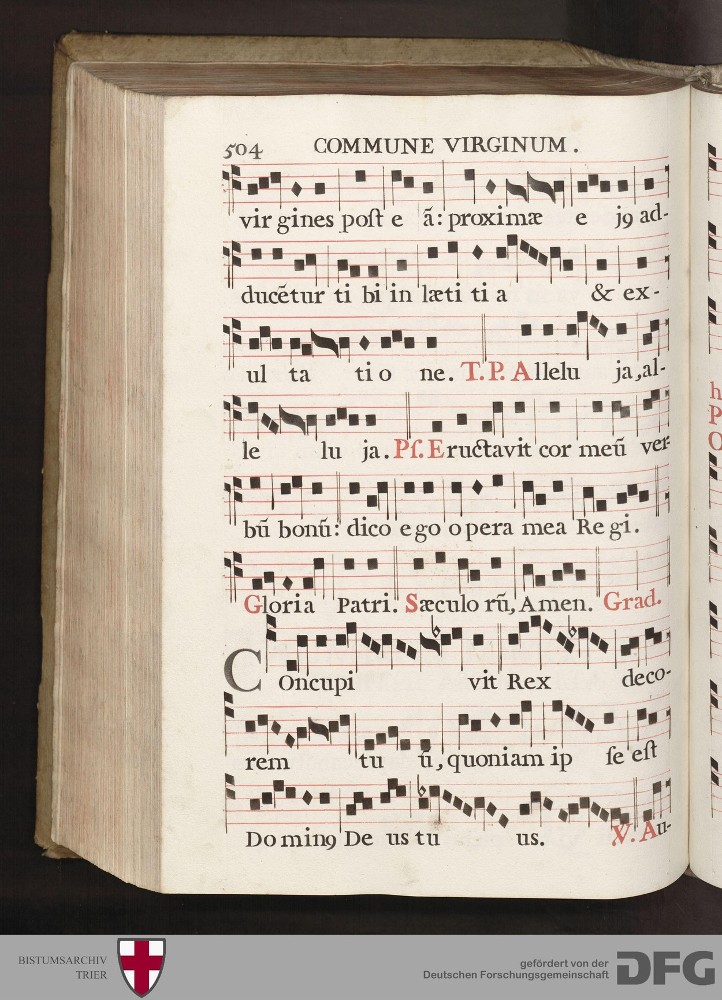 504 COMMUNE VIRGINUM.
vir gines poſt e ã: proximæ e j9 ad-
ducẽtur ti bi in læti ti a & ex-
ul ta ti o ne. T. P. Allelu ja, al-
le lu ja. Pſ. Eructavit cor meũ ver-
bũ bonũ: dico ego opera mea Regi.
Gloria Patri. Sæculo rũ, Amen. Grad.
COncupi vit Rex deco-
rem tu ũ, quoniam ip ſe eſt
Domin9 De us tu us. ℣. Au-
BISTUMSARCHIV
TRIER
gefördert von der
Deutschen Forschungsgemeinschaft
DFG